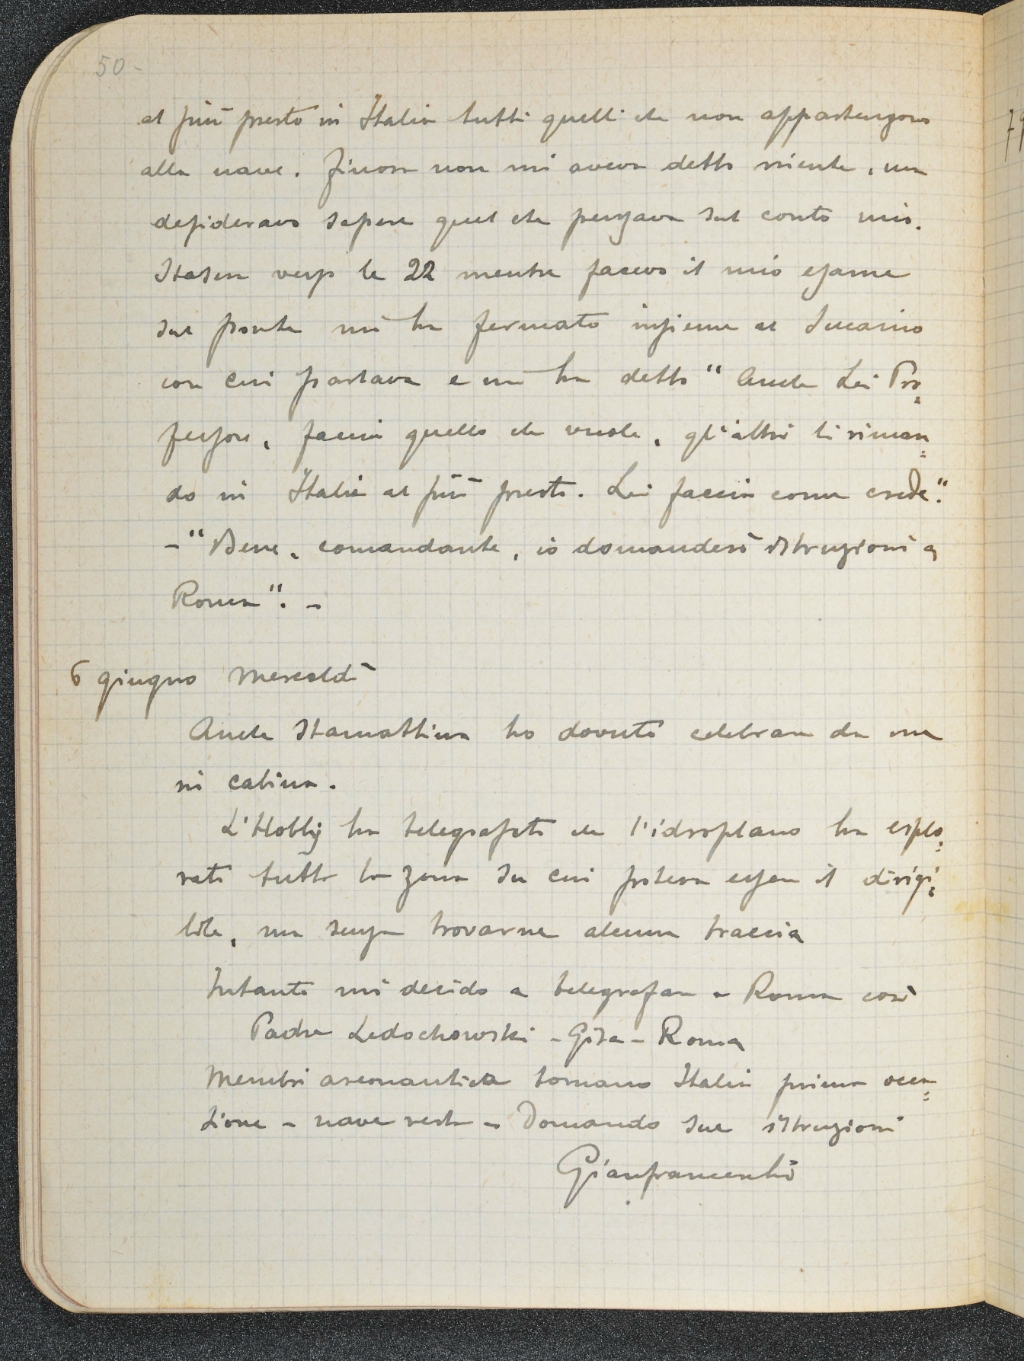 50-
al più presto in Italia tutti quelli che non appartengono
alla nave. Finora non mi aveva detto niente, ma
desideravo sapere quel che pensava sul conto mio.
Stasera verso le 22 mentre facevo il mio esame
sul ponte mi ha fermato insieme al
con cui parlava e mi ha detto "Anche Lei Pro=
fessore, faccia quello che vuole, gli altri li riman=
do in Italia al più presto. Lei faccia come crede."
-"Bene, comandante, io domanderò istruzioni a
Roma". -
6 giugno Mercoldì
Anche stamattina ho dovuto celebrare da me
in cabina.
L'Hobby ha telegrafato che l'idroplano ha esplo=
rato tutta la zona su cui poteva essere il dirigi=
bile, ma senza trovarne alcuna traccia
Intanto mi decido a telegrafare a Roma così
Padre Ledochowski - Gisa - Roma
Membri areonautica tornano Italia prima occa=
sione - nave resta - Domando sue istruzioni
Gianfranceschi